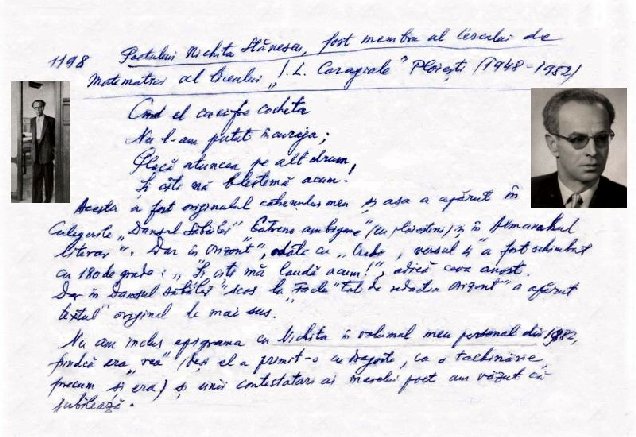 1198 Poetului Nichita Stănescu, fost membru al Cercului de
Matematică al Liceului "I. L. Caragiale" Ploiești (1948-1952)
Cînd el cocheta
Nu l-am putut încuraja;
Plecă atuncea pe alt drum,
Și iată mă blestemă acum!
Acesta a fost originalul catrenului meu și așa a apărut în
Culegerile "Dansul Săbiilor" Extreme (cu ploieșteni) și în Almanahul
literar". Dar în Orizont", odată cu versul 4 a fost schimbat
cu 180 de grade: "Și iată mă laudă acum!", adică ceva anost.
Dar în Dansul săbiilor" scos la tot de redacția Orizont" a apărut
textul original de mai sus.
Nu am inclus epigrama cu Nichita în volumul meu personal din 1982,
fiindcă era "rea" (deși el a primit-o cu dragoste, ca o tachinărie,
precum și era) și unii contestatari ai marelui poet am văzut că
jubilează.